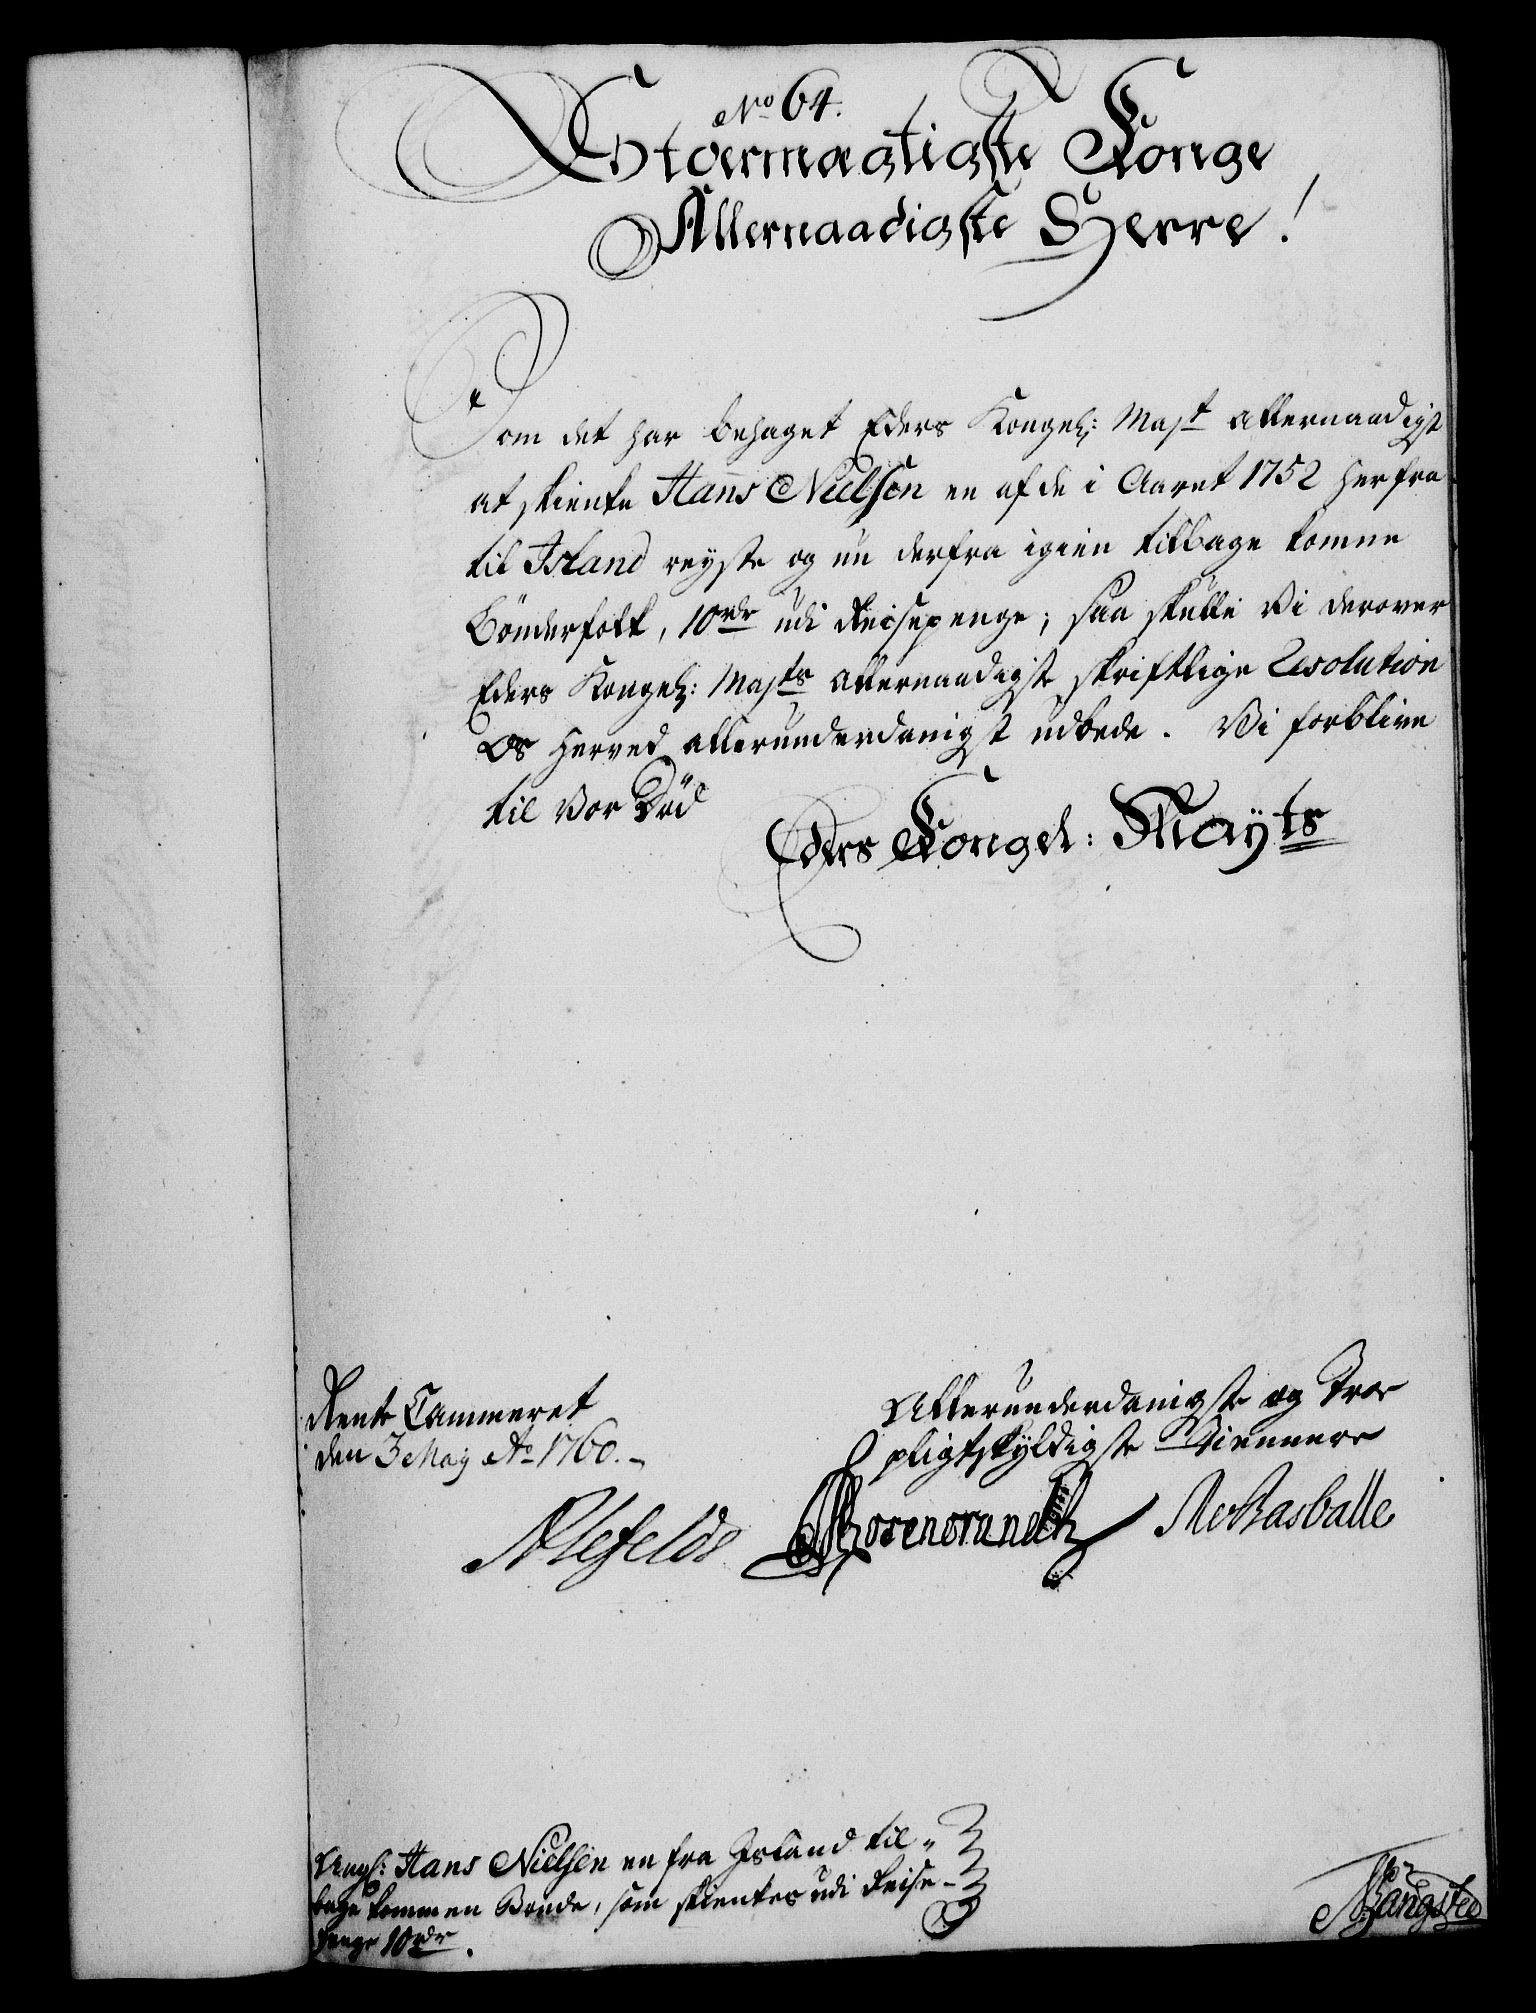 No 64.
Stoermægtigste Konge
Allernaadigste Herre!
Som det har behaget Eders Kongel: Majt allernaadigst
at skienke Hans Nielsen en af de i Aaret 1752 herfra
til Island reyste og nu derfra igien tilbage komne
Bönderfolk, 10rdr udi Reisepenge; saa skulle Vi derover
Eders Kongel: Majts allernaadigste skriftlige Resolution
Os herved allerunderdanigst udbede. Vi forblive
til Vor Död
Eders Kongel: Mayts
Rente Cammeret
den 3 May Ao 1760.
Allerunderdanigste og Troe
pligtskyldigste Tiennere
Ahlefeldt
Rosenorandth
Angl: Hans Nielsen en fra Island til-
bage kommen Bonde, som skientes udi Reise-
penge 10rdr.
Bangsted